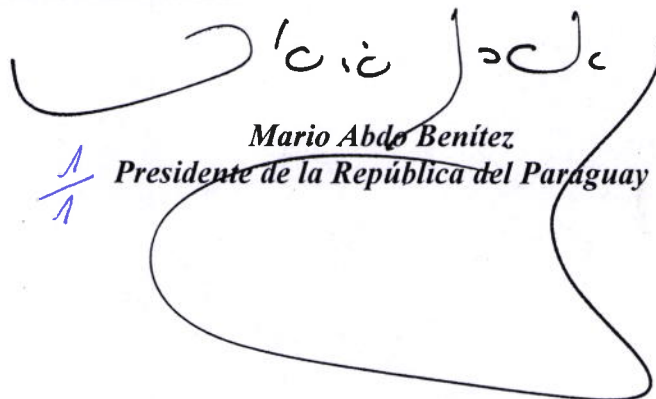 Mario Abdo Benítez
1/1 Presidente de la República del Paraguay